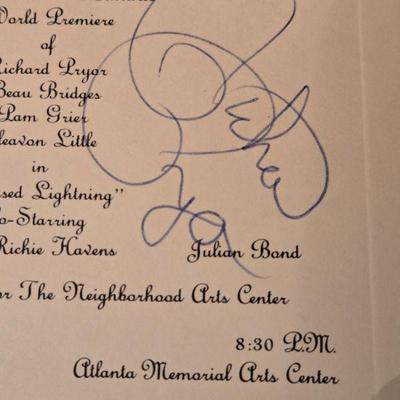 World Premiere
of
Richard Pryor
Beau Bridges
Pam Grier
Cleavon Little
in
ased Lightning"
o-Starring
Richie Havens Julian Bond
or The Neighborhood Arts Center
8:30 P.M.
Atlanta Memorial Arts Center